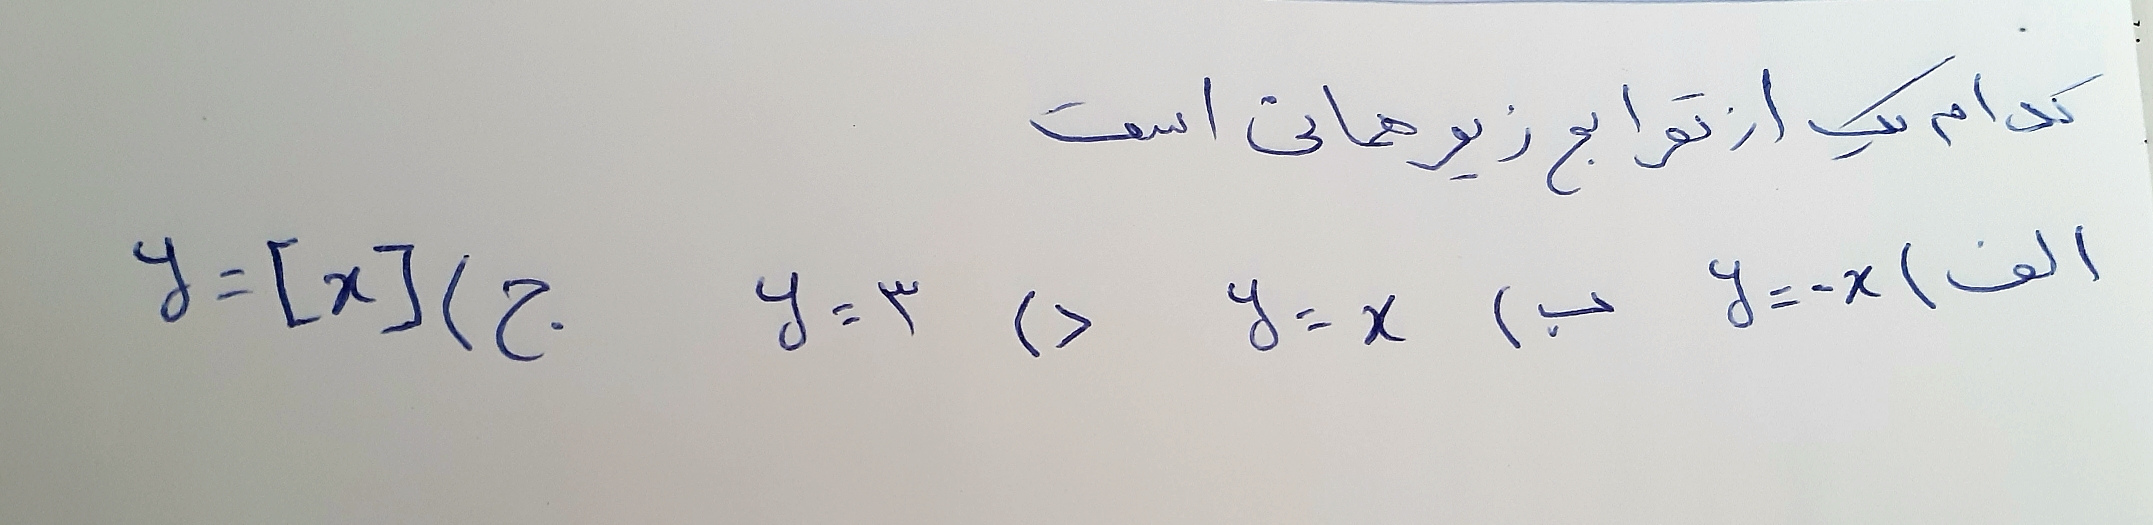 کدام یک از توابع زیر همانی است
الف) y=-x ب) y=x د) y=۳ ج) y=[x]